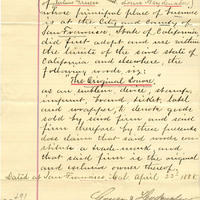 whose principal place of business
is at the City and County of
San Francisco, State of California,
did first adopt and use within
the limits of the said state of
California and elsewhere, the
following words, viz:
"The Original Louvre"
as an emblem, device, stamp,
imprint, brand, ticket, label
and wrapper, to denote goods
sold by said firm and said
firm therefore by these presents
does claim that said words con-
stitute a trade-mark, and
that said firm is the original
and exclusive owner thereof.
Dated at San Francisco Cal April 23rd 1888.